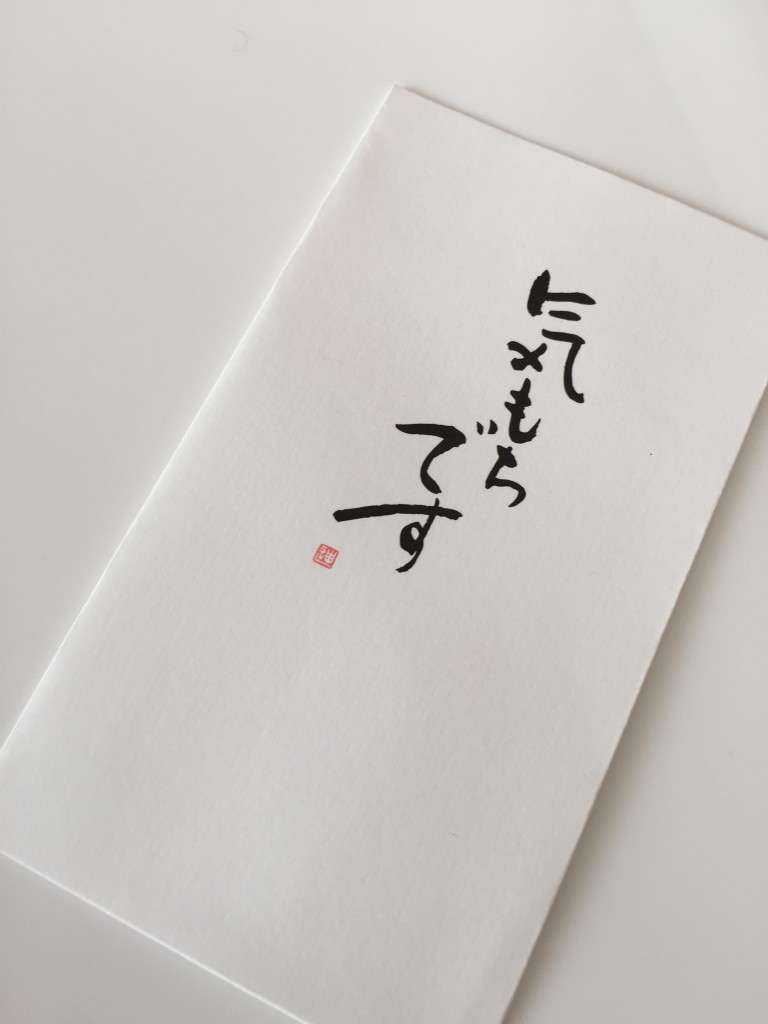 気もち
です